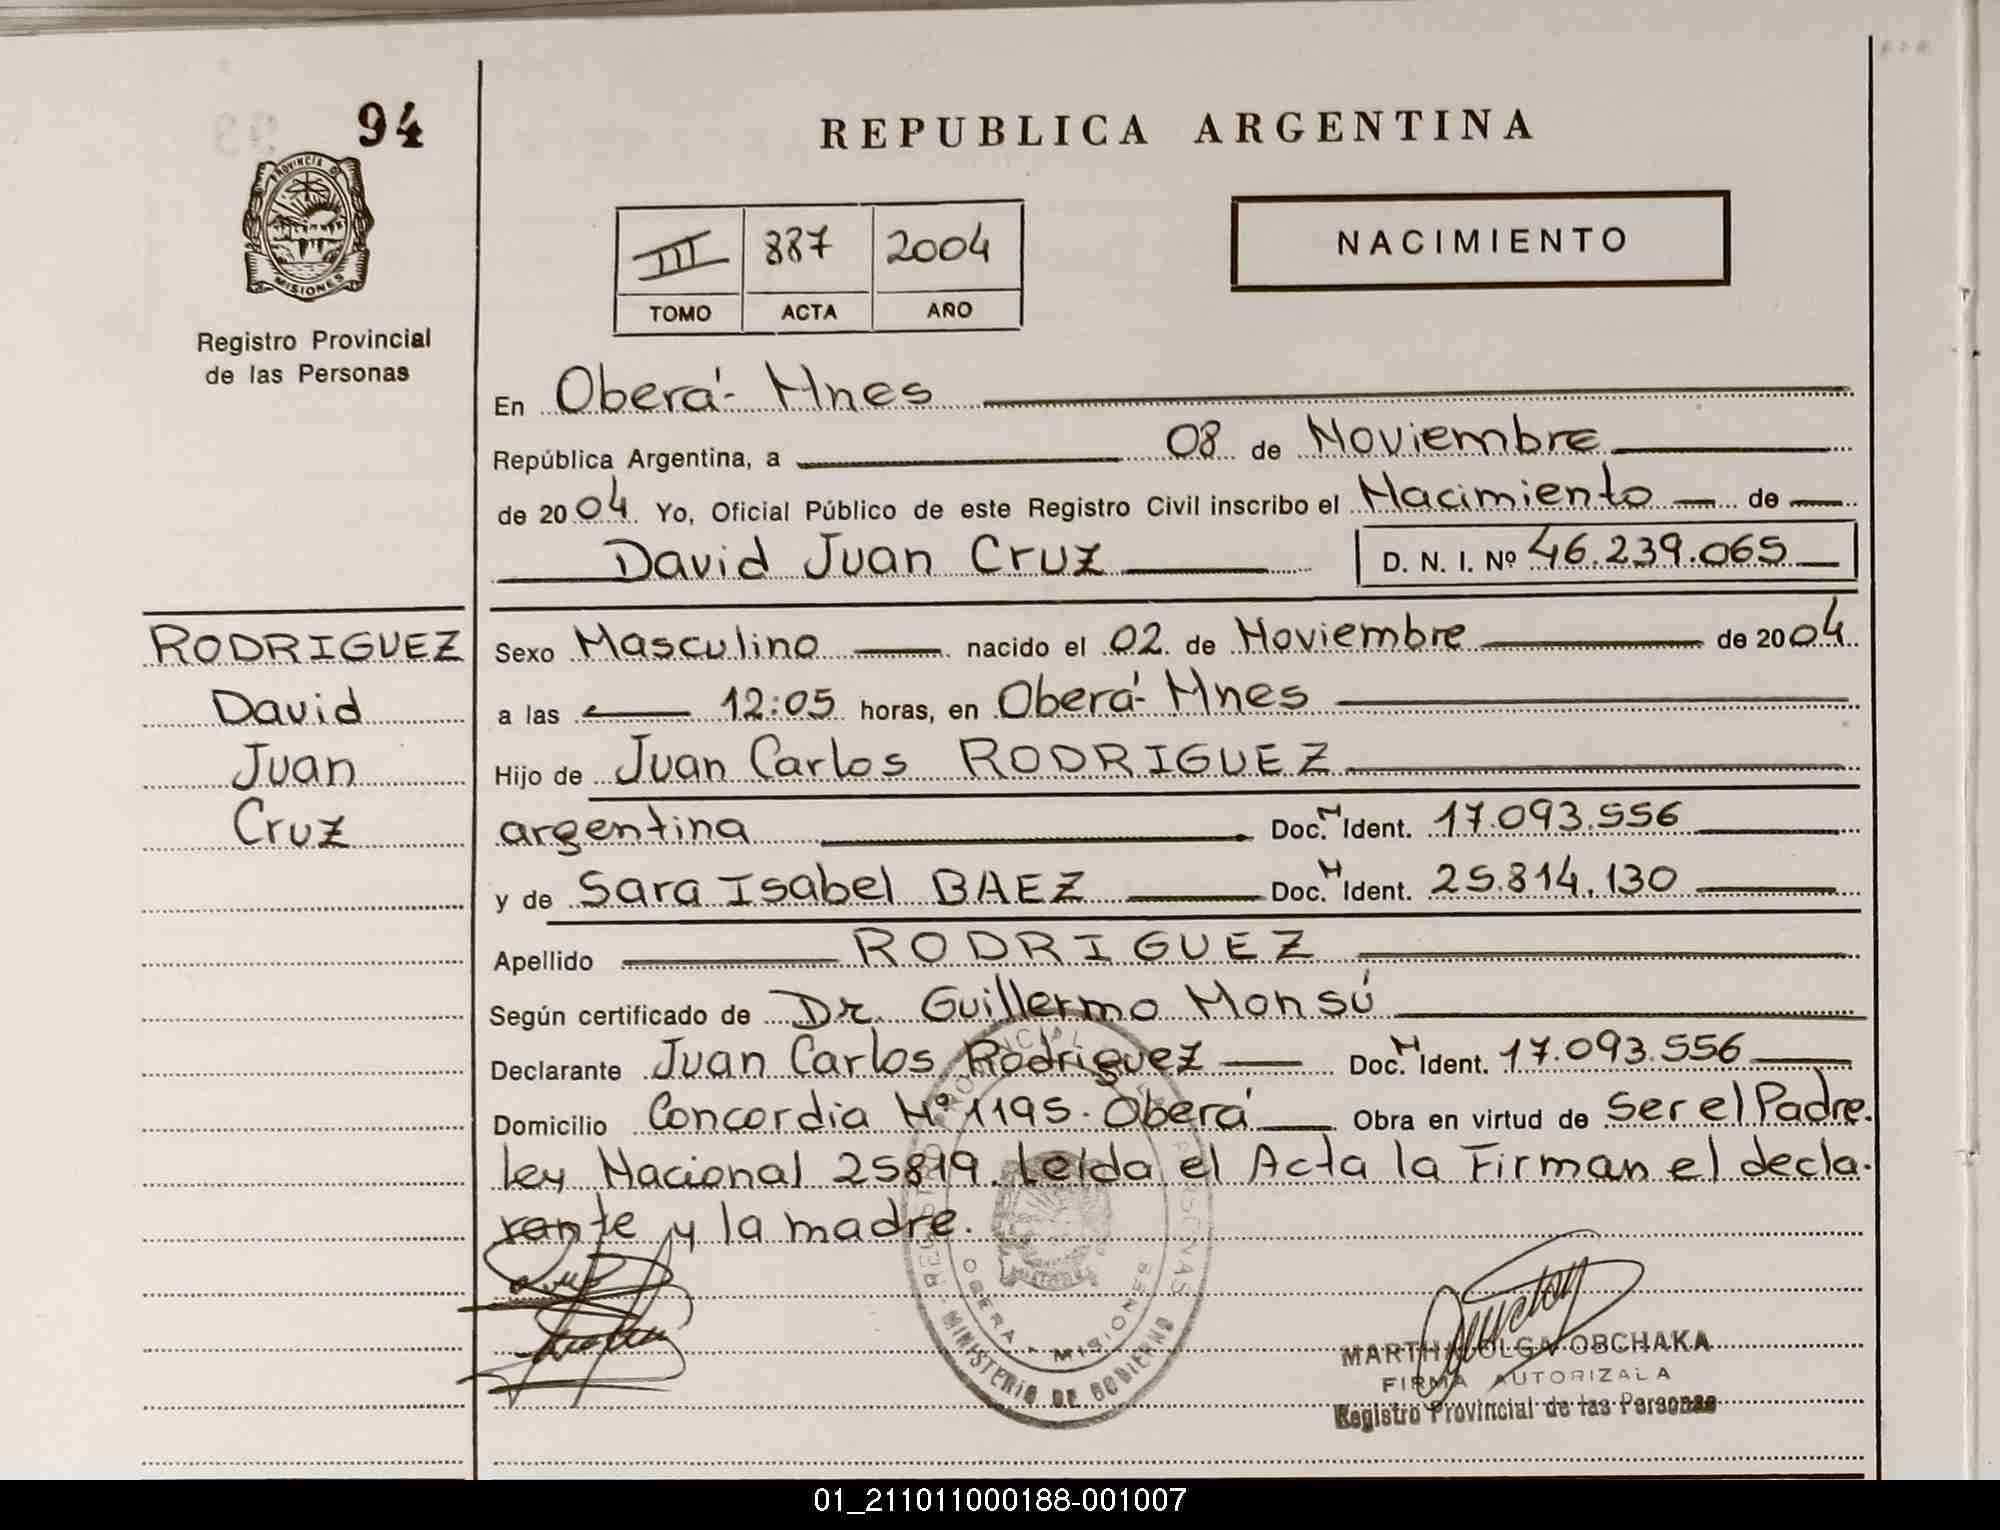 94
REPUBLICA ARGENTINA
PROVINCIA DE
MISIONES
Registro Provincial
de las Personas
III 887 2004
TOMO ACTA AÑO
NACIMIENTO
En Oberá- Mnes
República Argentina, a 08 de Noviembre
de 2004 Yo, Oficial Público de este Registro Civil inscribo el Nacimiento de
David Juan Cruz D. N. I. Nº 46.239.065
RODRIGUEZ
David
Juan
Cruz
Sexo Masculino nacido el 02 de Noviembre de 2004
a las 12:05 horas, en Oberá- Mnes
Hijo de Juan Carlos RODRIGUEZ
argentina Doc. N Ident. 17.093.556
y de Sara Isabel BAEZ Doc. N Ident. 25.814.130
Apellido RODRIGUEZ
Según certificado de Dr. Guillermo Monsú
Declarante Juan Carlos Rodriguez Doc. N Ident. 17.093.556
Domicilio Concordia Nº 1195. Oberá Obra en virtud de ser el Padre.
ley Nacional 25819. Leída el Acta la Firman el decla-
rante y la madre.
REGISTRO PROVINCIAL PERSONAS
OBERA - MISIONES
MINISTERIO DE GOBIERNO
MARTHA OLGA OBCHAKA
FIRMA AUTORIZADA
Registro Provincial de las Personas
01_211011000188-001007